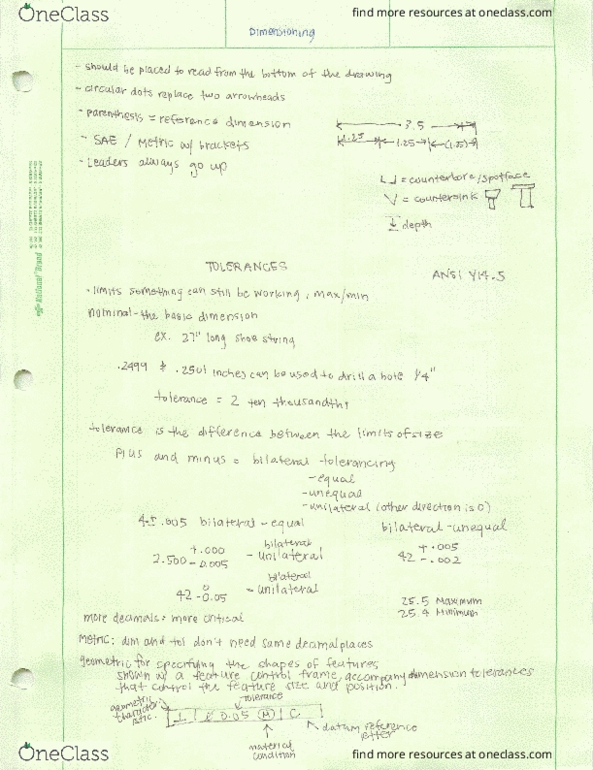 OneClass
find more resources at oneclass.com
Dimensioning
- should be placed to read from the bottom of the drawing
- circular dots replace two arrowheads
- parenthesis = reference dimension
3.5
- SAE / Metric w/ brackets
1.25 1.25 (1.25)
- Leaders always go up
⌴ = counterbore/spotface
V = countersink
↧ depth
TOLERANCES
ANSI Y14.5
- limits something can still be working, max/min
nominal - the basic dimension
ex. 27" long shoe string
.2499 & .2501 inches can be used to drill a hole 1/4"
tolerance = 2 ten thousandths
tolerance is the difference between the limits of size
Plus and minus = bilateral tolerancing
- equal
- unequal
- unilateral (other direction is 0)
4 ± .005 bilateral - equal
bilateral - unequal
2.500 +.000 -0.005 bilateral - unilateral
42 +.005 -.002
42 0 -0.05 bilateral - unilateral
25.5 Maximum
25.4 Minimum
more decimals = more critical
Metric: dim and tol don't need same decimal places
geometric for specifying the shapes of features
shown w/ a feature control frame, accompany dimension tolerances
that control the feature size and position.
geometric characteristic
tolerance
⊥ 0.05 Ⓜ C
datum reference letter
material condition
OneClass
find more resources at oneclass.com